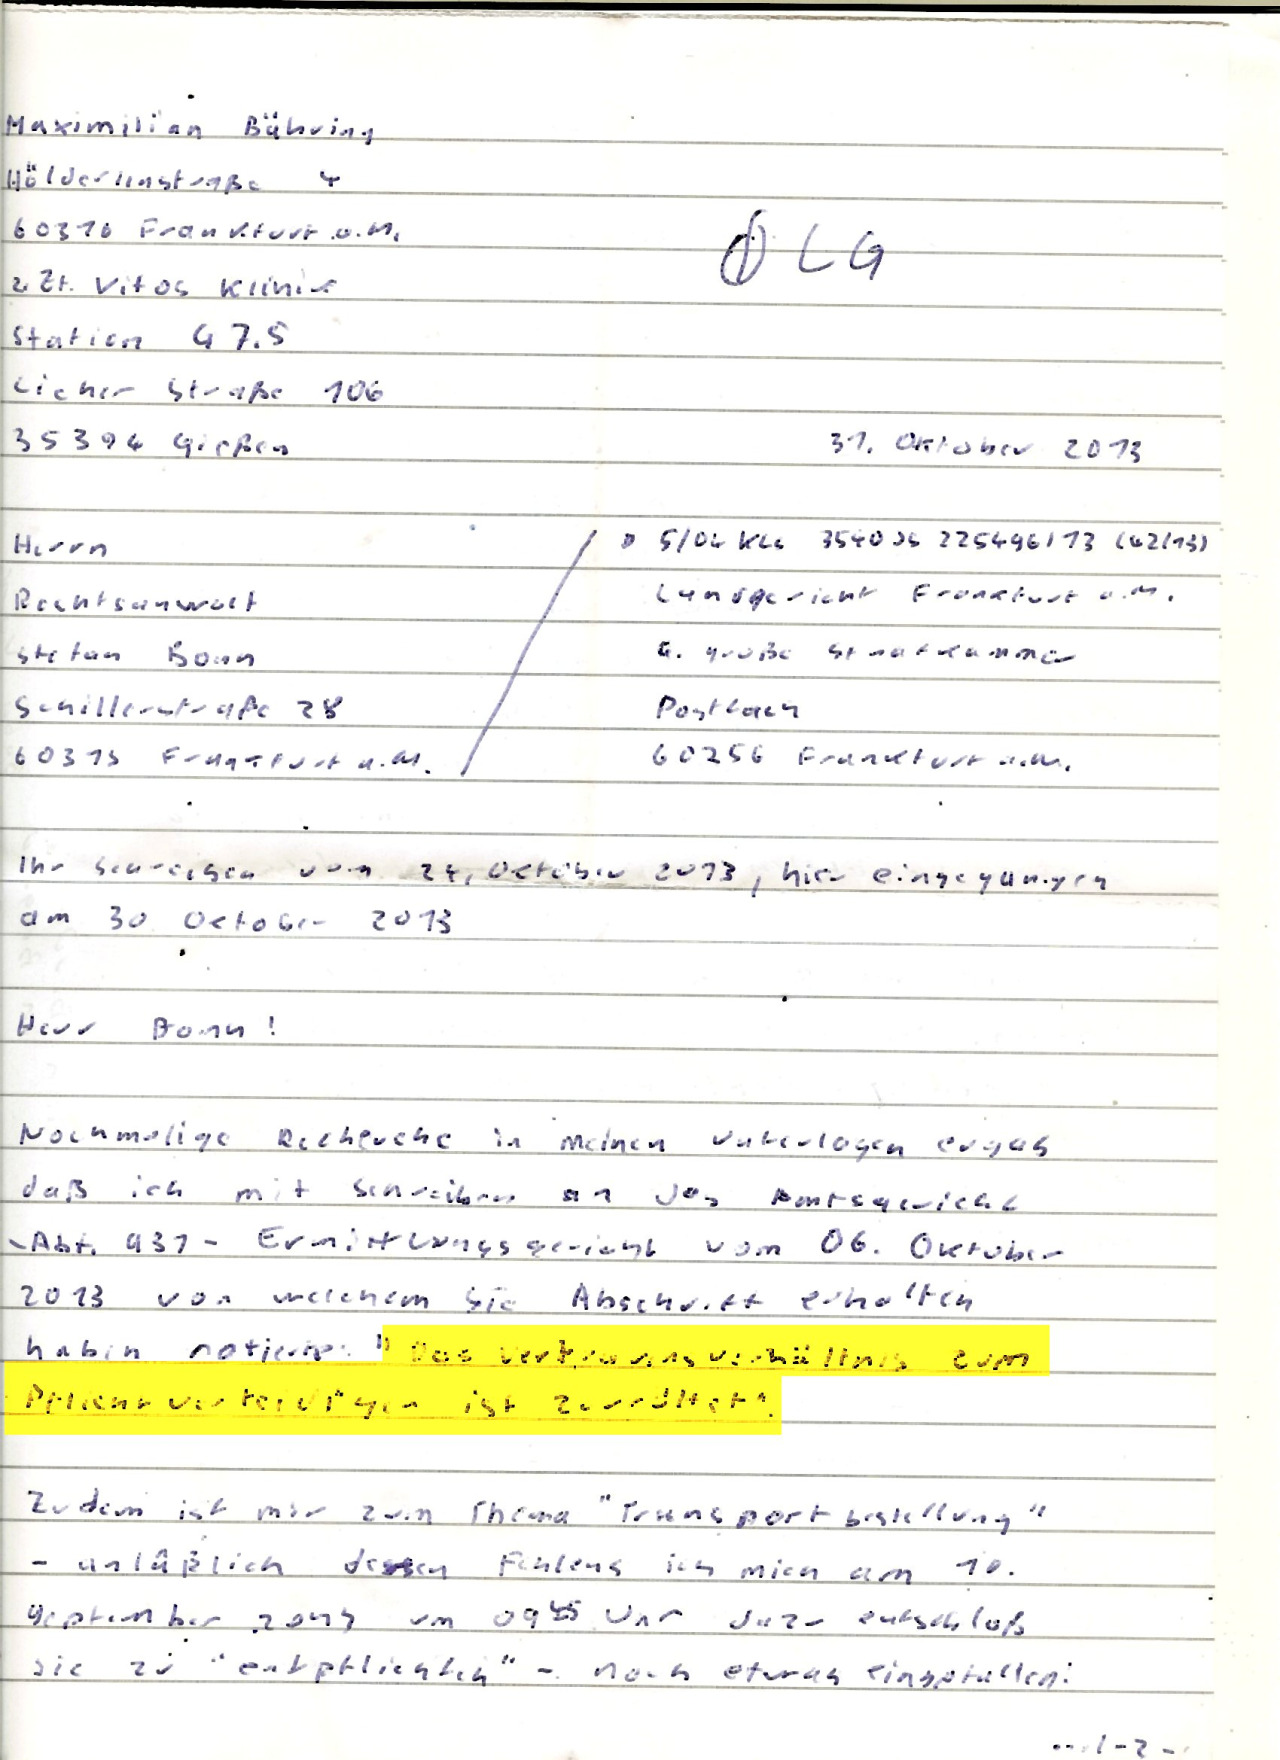 Maximilian Bähring
Hölderlinstraße 4
60316 Frankfurt a.M.
z.Zt. Vitos Klinik
Station G 7.5
Licher Straße 106
35394 Gießen
LG
31. Oktober 2013
Herrn
Rechtsanwalt
Stefan Bonn
Schillerstraße 28
60313 Frankfurt a.M.
5/04 KLs 3540 Js 225496/13 (42/13)
Landgericht Frankfurt a.M.
4. große Strafkammer
Postfach
60256 Frankfurt a.M.
Ihr Schreiben vom 24. October 2013, hier eingegangen
am 30 October 2013
Herr Bonn!
Nochmalige Recherche in meinen Unterlagen ergab
daß ich mit Schreiben an das Amtsgericht
-Abt. 931 - Ermittlungsgericht vom 06. Oktober
2013 von welchem Sie Abschrift erhalten
haben notierte: "Das Vertrauensverhältnis zum
Pflichtverteidigen ist zerrüttet".
Zudem ist mir zum Thema "Transportbestellung"
- anläßlich dessen Fehlens ich mich am 10.
September 2013 um 09 45 Uhr dazu entschloß
sie zu "entpflichten" - noch etwas eingefallen:
.../-2-